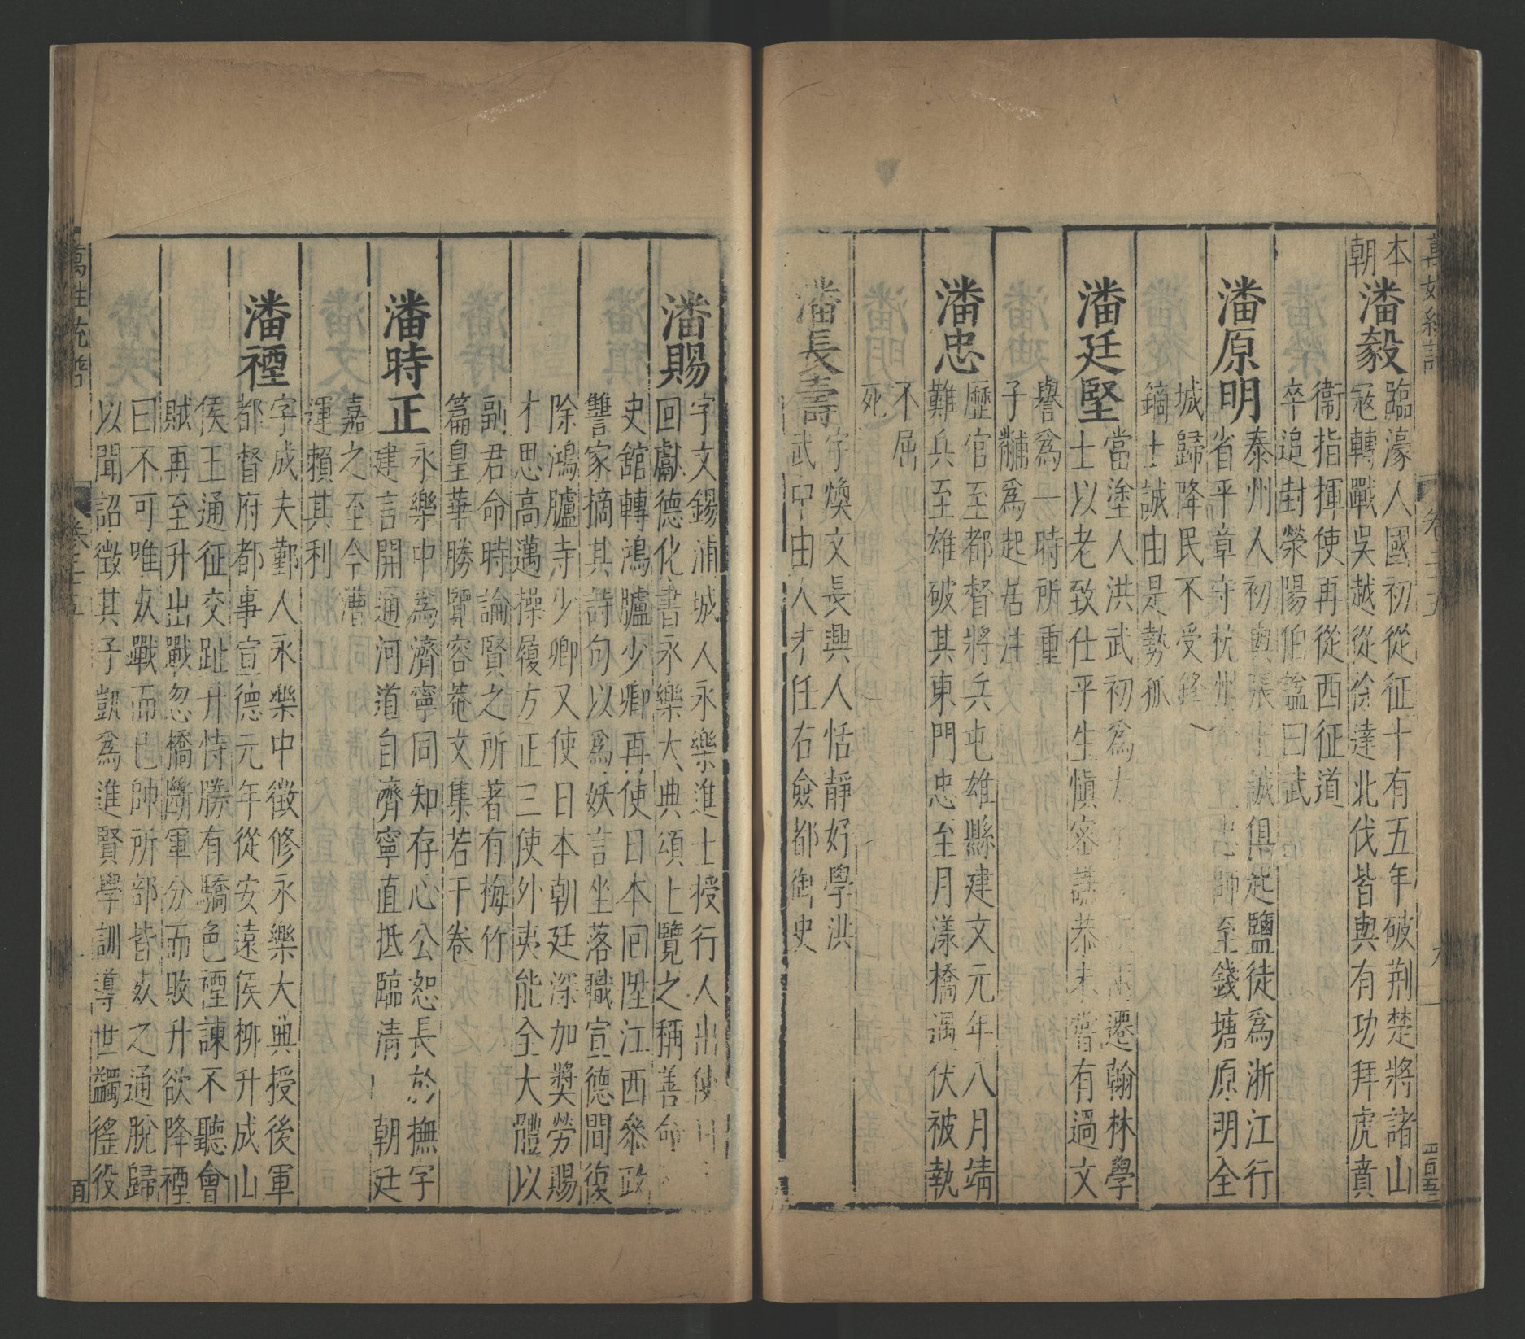 本朝
潘毅
臨濠人國初從征十有五年破荆楚將諸山
寇轉戰吳越從徐達北伐皆與有功拜虎賁
衛指揮使再從西征道
卒追封滎陽伯諡曰武
潘原明
泰州人初與張士誠俱起鹽徒爲浙江行
省平章守杭州 師至錢塘原明全
城歸降民不受鋒
鏑士誠由是勢孤
潘廷堅
當塗人洪武初爲 遷翰林學
士以老致仕平生愼密謙恭未嘗有過文
譽爲一時所重
子黼爲起居注
潘忠
歷官至都督將兵屯雄縣建文元年八月靖
難兵至雄破其東門忠至月漾橋遇伏被執
不屈
死
潘長壽
字煥文長興人恬靜好學洪
武中由人才任右僉都御史
潘賜
字文錫浦城人永樂進士授行人出使日
回獻德化書永樂大典頌上覽之稱善命
史舘轉鴻臚少卿再使日本囘陞江西叅政
讐家摘其詩句以爲妖言坐落職宣德間復
除鴻臚寺少卿又使日本朝廷深加奬勞賜
才思高邁操履方正三使外夷能全大體以
副君命時論賢之所著有梅竹
篇皇華勝覽容菴文集若干卷
潘時正
永樂中爲濟寧同知存心公恕長於撫字
建言開通河道自濟寧直抵臨清 朝廷
嘉之至今漕
運賴其利
潘禋
字成夫鄞人永樂中徵修永樂大典授後軍
都督府都事宣德元年從安遠侯柳升成山
侯王通征交趾升恃勝有驕色禋諫不聽會
賊再至升出戰忽橋斷軍分而敗升欲降禋
曰不可唯㱠戰而已帥所部皆㱠之通脫歸
以聞詔徵其子凱爲進賢學訓導世蠲徭役